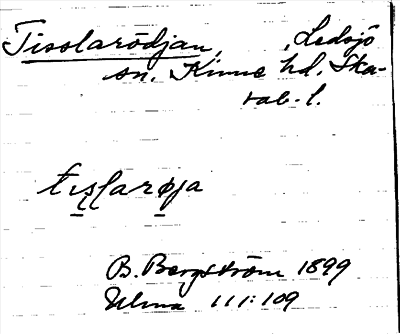 Tisslarödjan, Ledsjö
sn. Kinne hd. Ska-
rab. l.
tısʃarøja
B. Bergström 1899
Ulma 111:109